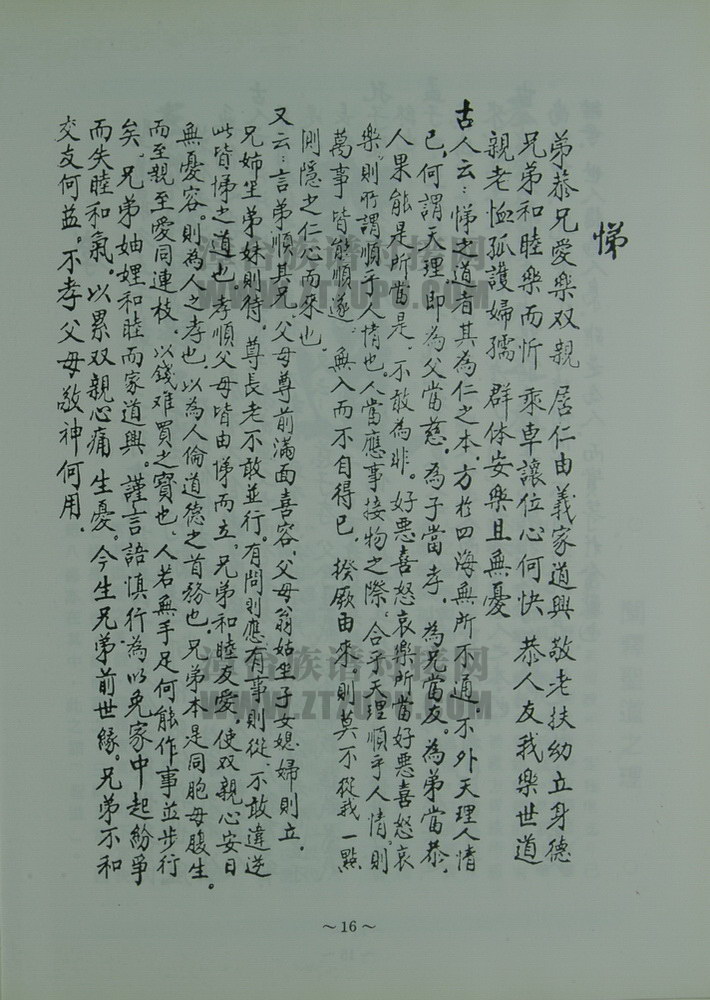 悌
弟恭兄愛樂双親 居仁由義家道興 敬老扶幼立身德
兄弟和睦樂而忻 乘車讓位心何快 恭人友我樂世道
親老恤孤護婦孺 群体安樂且無憂
古人云：悌之道者其為仁之本，方於四海無所不通，不外天理人情
已，何謂天理即為父當慈。為子當孝，為兄當友。為弟當恭，
人果能是所當是，不敢為非。好惡喜怒哀樂所當好惡喜怒哀
樂，則所謂順乎人情也。人當應事接物之際，合乎天理順乎人情，則
萬事皆能順遂，無入而不自得已，揆厥由來，則莫不從我一點
惻隱之仁心而來也。
又云：言弟順其兄，父母尊前滿面喜容，父母翁姑坐子女媳婦則立，
兄姊坐弟妹則待。尊長老不敢並行。有問則應有事則從，不敢違逆
此皆悌之道也。孝順父母皆由悌而立，兄弟和睦友愛，使双親心安日
無憂容。則為人之孝也，以為人倫道德之首務也，兄弟本是同胞母腹生。
而至親至愛同連枝，以錢难買之寶也，人若無手足何能作事並步行
矣，兄弟妯娌和睦而家道興。謹言語慎行為以免家中起紛爭
而失睦和氣。以累双親心痛生憂。今生兄弟前世緣。兄弟不和
交友何益。不孝父母敬神何用．
～16～
族谱
网
WWW.ZTZUPU.COM
族谱
网
WWW.ZTZUPU.COM